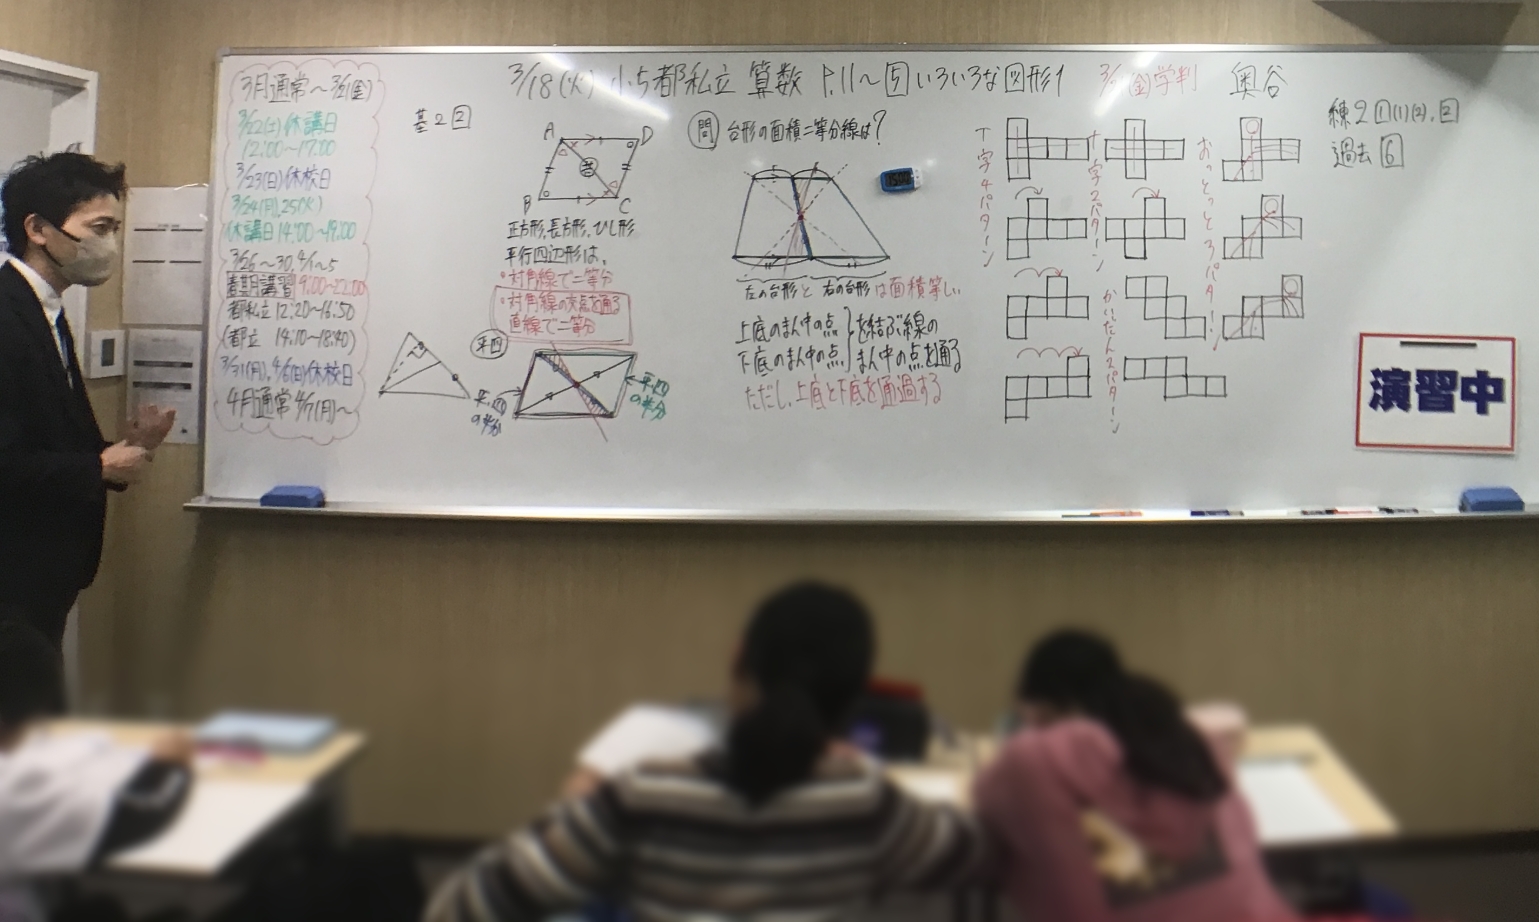 3/18(火) 小5都私立 算数 P.11〜 5 いろいろな図形1 (金)学判 奥谷
3月通常〜3/21(金)
3/22(土)休講日
12:00〜17:00
3/23(日)休校日
3/24(月),25(火)
休講日14:00〜19:00
3/26〜30,4/1〜5
春期講習 9:00〜22:00
都私立 12:20〜16:50
(都立 14:10〜18:40)
3/31(月),4/6(日)休校日
4月通常 4/7(月)〜
基2 2
A
D
B
C
正方形,長方形,ひし形
平行四辺形は、
・対角線で二等分
・対角線の交点を通る
直線で二等分
平四
平四
の半分
平四
の半分
問 台形の面積二等分線は?
左の台形と右の台形は面積等しい
上底のまん中の点
下底のまん中の点
を結ぶ線の
まん中の点を通る
ただし、上底と下底を通過する
T字4パターン
十字2パターン
かいだん2パターン
おっとっと3パターン
練2 1(1)(2), 2
過去 6
演習中